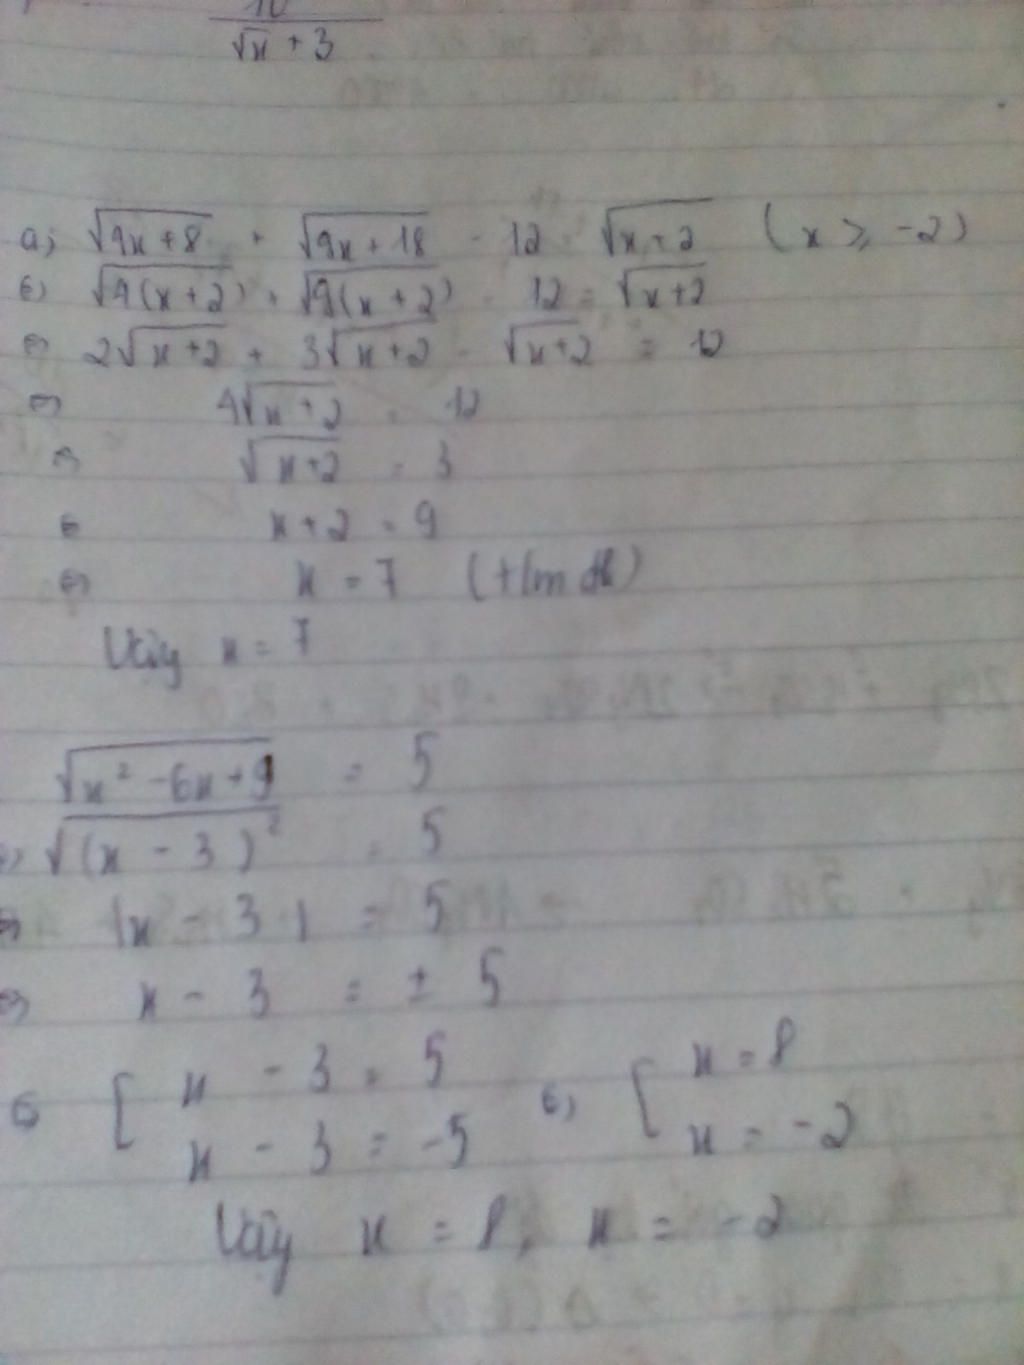 10
√x + 3
a) √4x + 8 + √9x + 18 - 12 = √x + 2 (x ≥ -2)
⇔ √4(x + 2) + √9(x + 2) - 12 = √x + 2
⇔ 2√x + 2 + 3√x + 2 - √x + 2 = 12
⇔ 4√x + 2 = 12
⇔ √x + 2 = 3
⇔ x + 2 = 9
⇔ x = 7 (t/m đk)
Vậy x = 7
√x² - 6x + 9 = 5
⇔ √(x - 3)² = 5
⇔ |x - 3| = 5
⇔ x - 3 = ± 5
⇔ [ x - 3 = 5 ⇔ [ x = 8
x - 3 = -5 x = -2
Vậy x = 8, x = -2